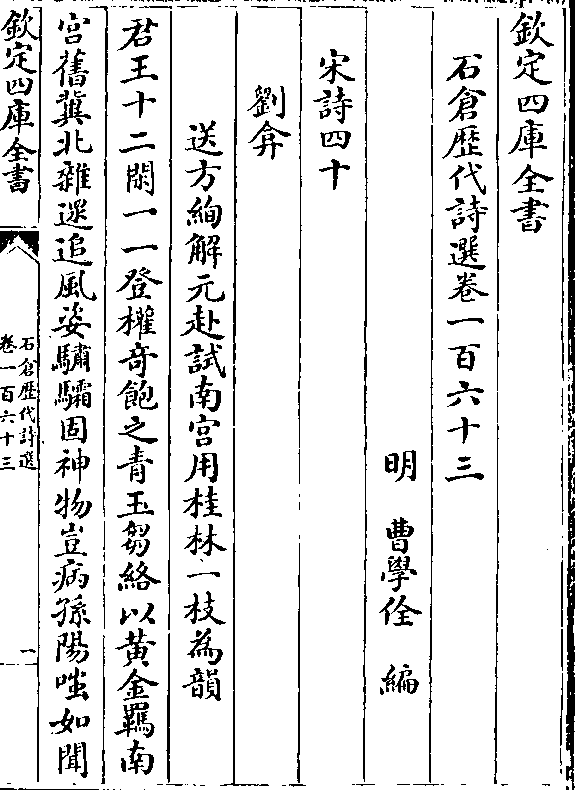 欽定四庫全書
石倉歴代詩選卷一百六十三
明　曹學佺　編
宋詩四十
劉弇
送方絢解元赴試南宫用桂林一枝為韻
君王十二閑一一登權竒飽之青玉芻絡以黄金羈南
宫舊冀北雜遝追風姿驌驦固神物豈病孫陽嗤如聞
欽定四庫全書
石倉歴代詩選
卷一百六十三
一